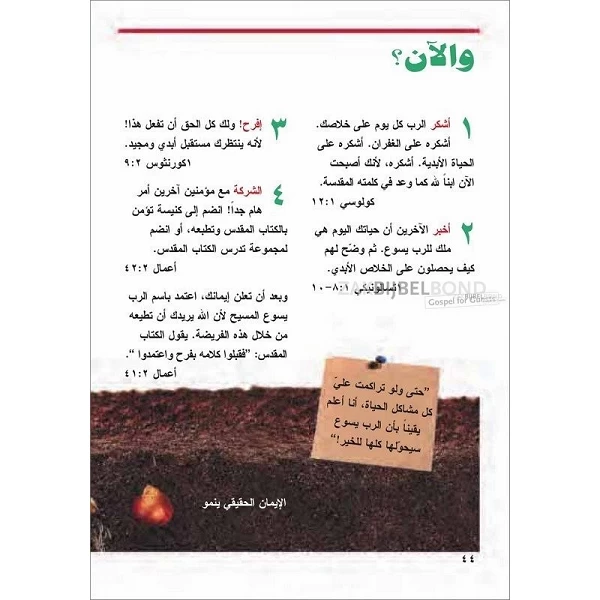 والآن؟
١ أشكر الرب كل يوم على خلاصك.
أشكره على الغفران. أشكره على
الحياة الأبدية. أشكره، لأنك أصبحت
الآن ابناً لله كما وعد في كلمته المقدسة.
كولوسي ١:‏١٢
٢ أخبر الآخرين أن حياتك اليوم هي
ملك للرب يسوع. ثم وضّح لهم
كيف يحصلون على الخلاص الأبدي.
١تسالونيكي ١:‏٨-١٠
٣ إفرح! ولك كل الحق أن تفعل هذا!
لأنه ينتظرك مستقبل أبدي ومجيد.
١كورنثوس ٢:‏٩
٤ الشركة مع مؤمنين آخرين أمر
هام جداً! انضم إلى كنيسة تؤمن
بالكتاب المقدس وتطبعه، أو انضم
لمجموعة تدرس الكتاب المقدس.
أعمال ٢:‏٤٢
وبعد أن تعلن إيمانك، اعتمد باسم الرب
يسوع المسيح لأن الله يريدك أن تطيعه
من خلال هذه الفريضة. يقول الكتاب
المقدس: ”فقبلوا كلامه بفرح واعتمدوا “.
أعمال ٢:‏٤١
”حتى ولو تراكمت عليّ
كل مشاكل الحياة، أنا أعلم
يقيناً بأن الرب يسوع
سيحوّلها كلها للخير!“
الإيمان الحقيقي ينمو
٤٤
BIJBELBOND
Gospel for Guests